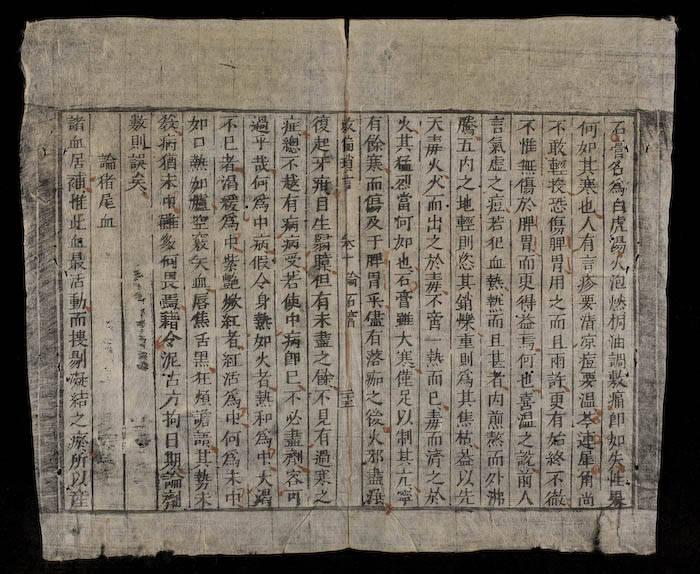 石膏名為白虎湯火泡燃桐油調敷瘡即如失
何如其寒也人有言疹要清凉痘要温芩連犀角尚
不敢輕投恐傷脾胃用之而且兩許更有始終不徹
不惟無傷於脾胃而更得益焉何也喜温之說前人
言氣虚之痘若犯血熱熱而且甚者內煎熬而外沸
騰五內之地輕則恣其銷爍重則為其焦枯益以先
天毒火火而出之於毒不啻一熱而已毒而濟之於
火其猛烈當何如也石膏雖大寒僅足以制其亢寧
有餘寒而傷及于脾胃乎儘有落痂之後火邪盡
救偏瑣言 卷十 論石膏 二十五
復起牙疳目生翳障但有未盡之餘不見有過寒之
症總不越有病病受若使中病即已不必盡劑容可
過乎哉何為中病假令身熱如火者熱和為中大渴
不已者渴緩為中紫艶焮紅者紅活為中何為未中
如口熱如爐空竅失血唇焦舌黑狂煩譫語其勢未
殺病猶未中雖多何畏焉藉令泥古方拘日期論劑
數則誤矣
論猪尾血
諸血居補惟此血最活動而摟剔凝結之瘀所以